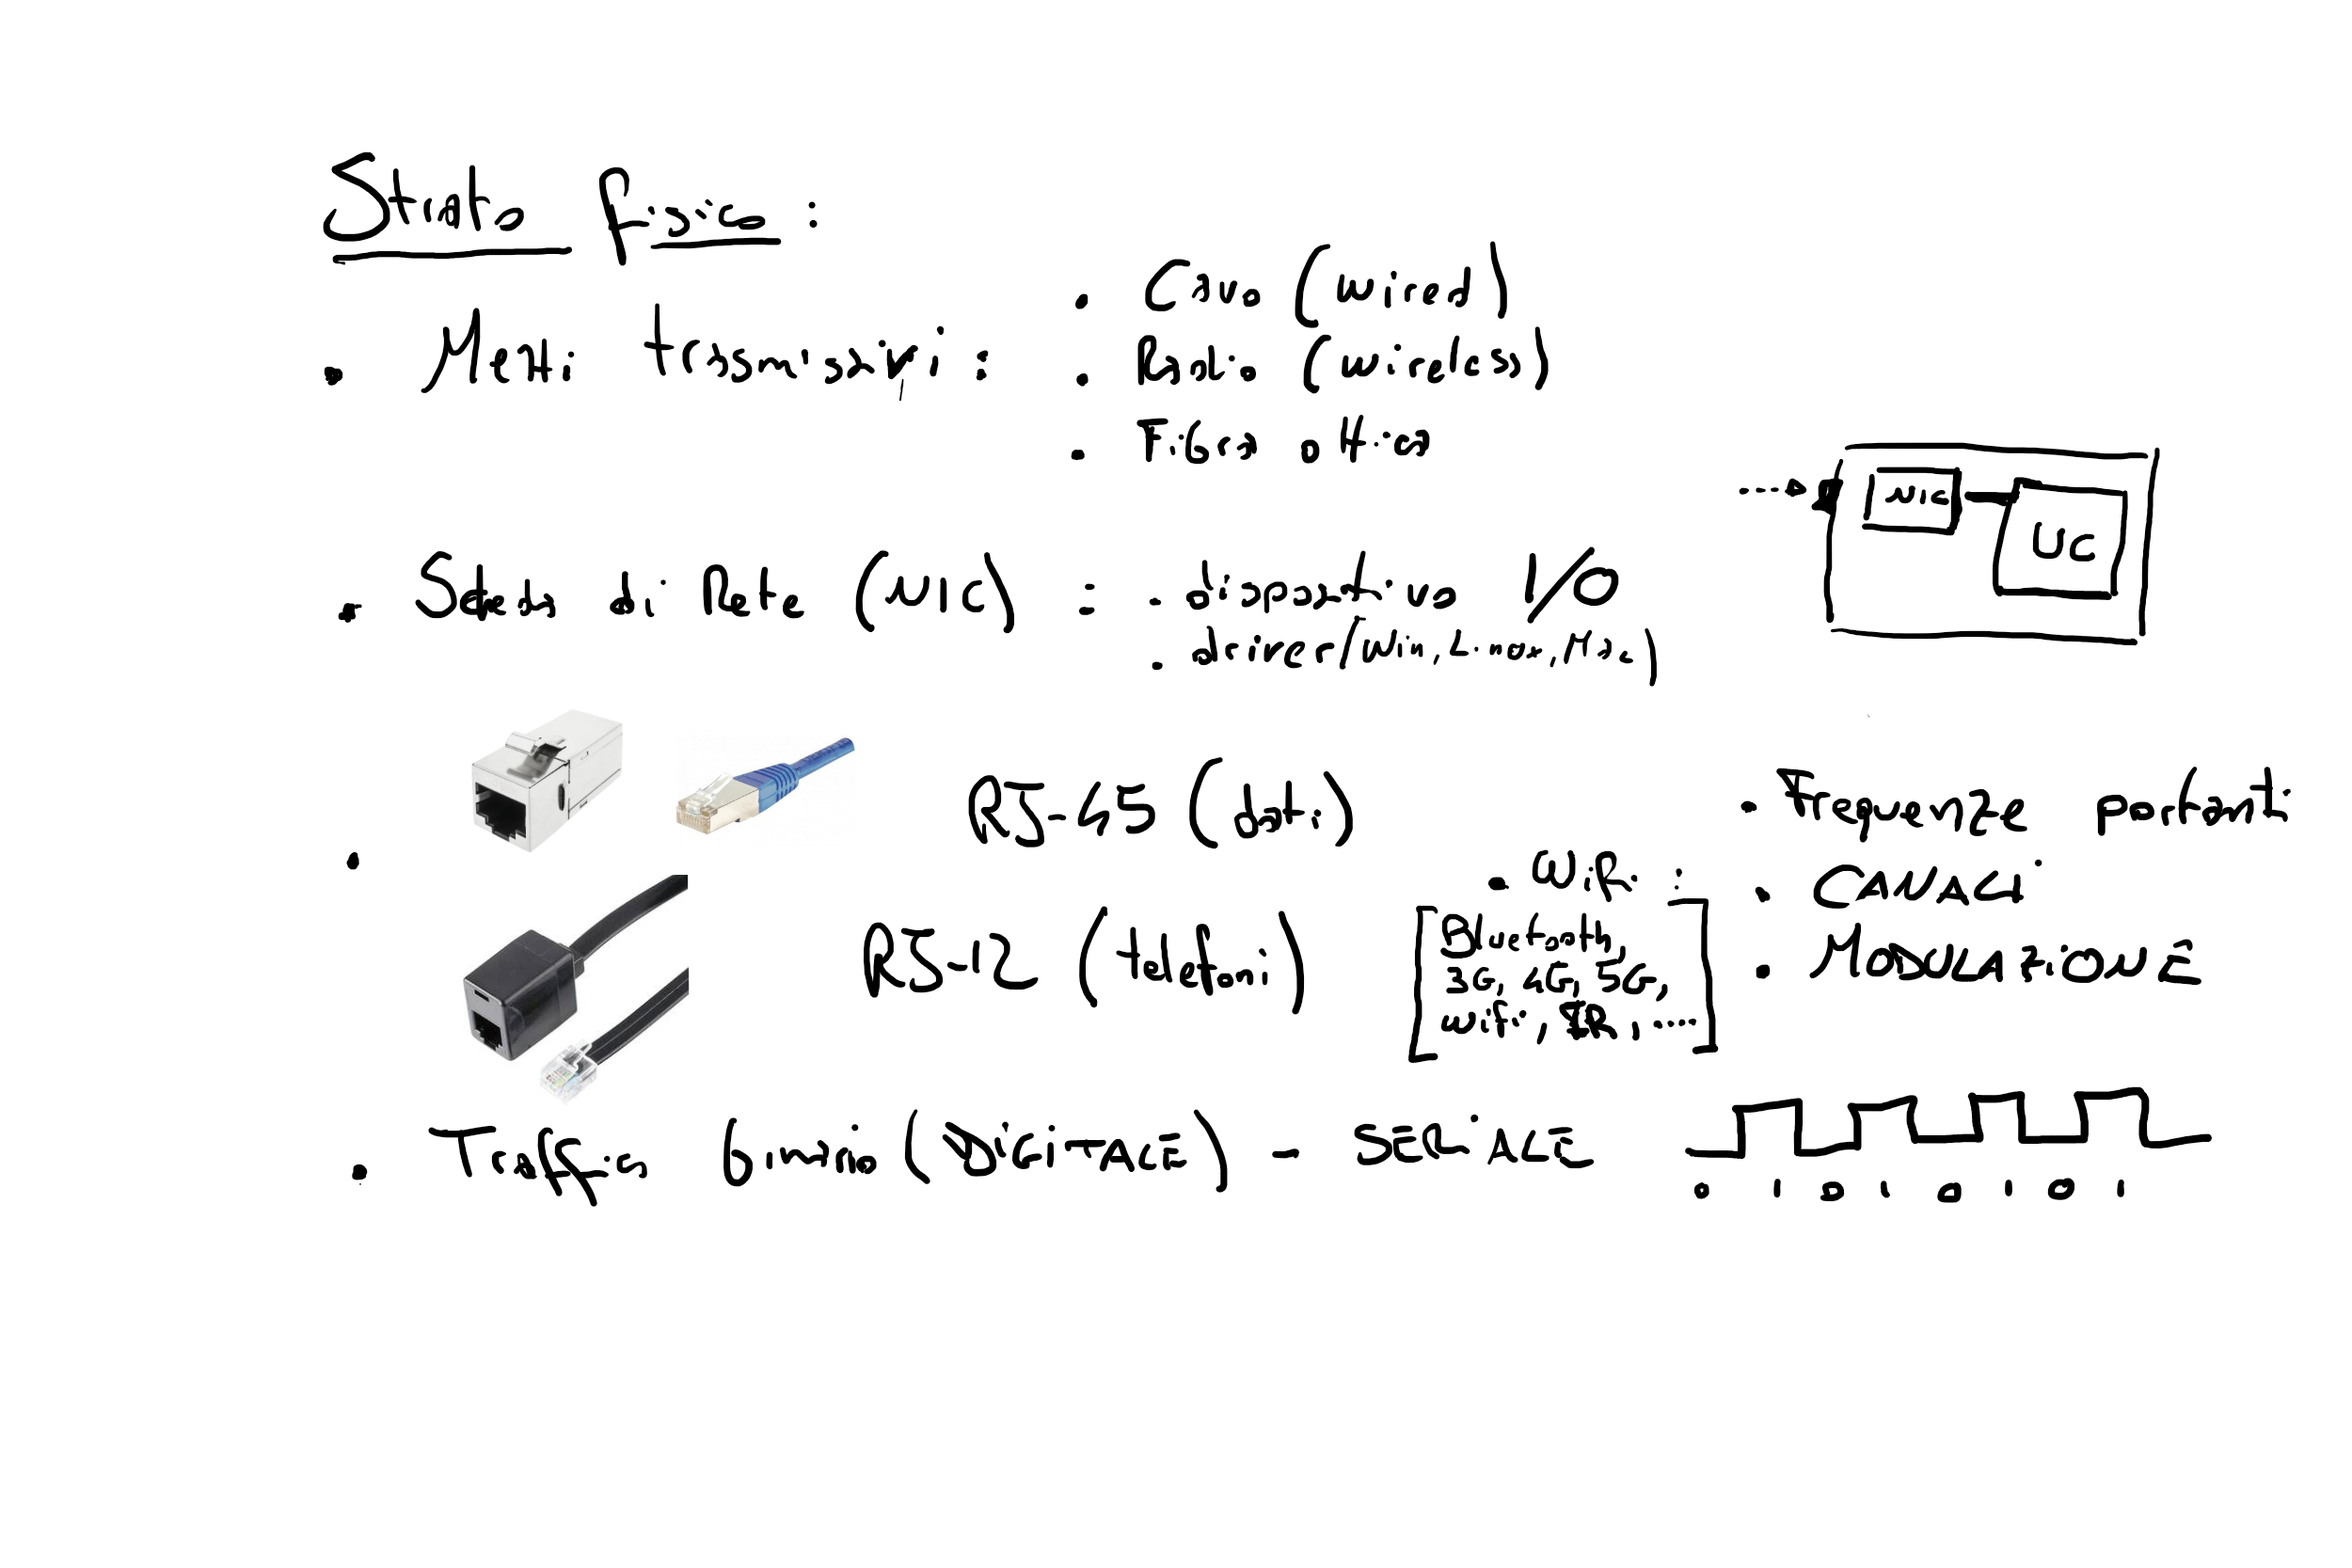 Strato fisico :
• Mezzi trasmissivi :
• Cavo (wired)
• Radio (wireless)
• Fibra ottica
NIC
UC
• Scheda di Rete (NIC) : • dispositivo I/O
• driver (Win, Linux, Mac)
RJ-45 (dati)
RJ-12 (telefoni)
• WiFi :
[Bluetooth,
3G, 4G, 5G,
wifi, IR, ....]
• Frequenze portanti
• CANALI
• MODULAZIONE
• Traffico binario (DIGITALE) - SERIALE
0 1 0 1 0 1 0 1